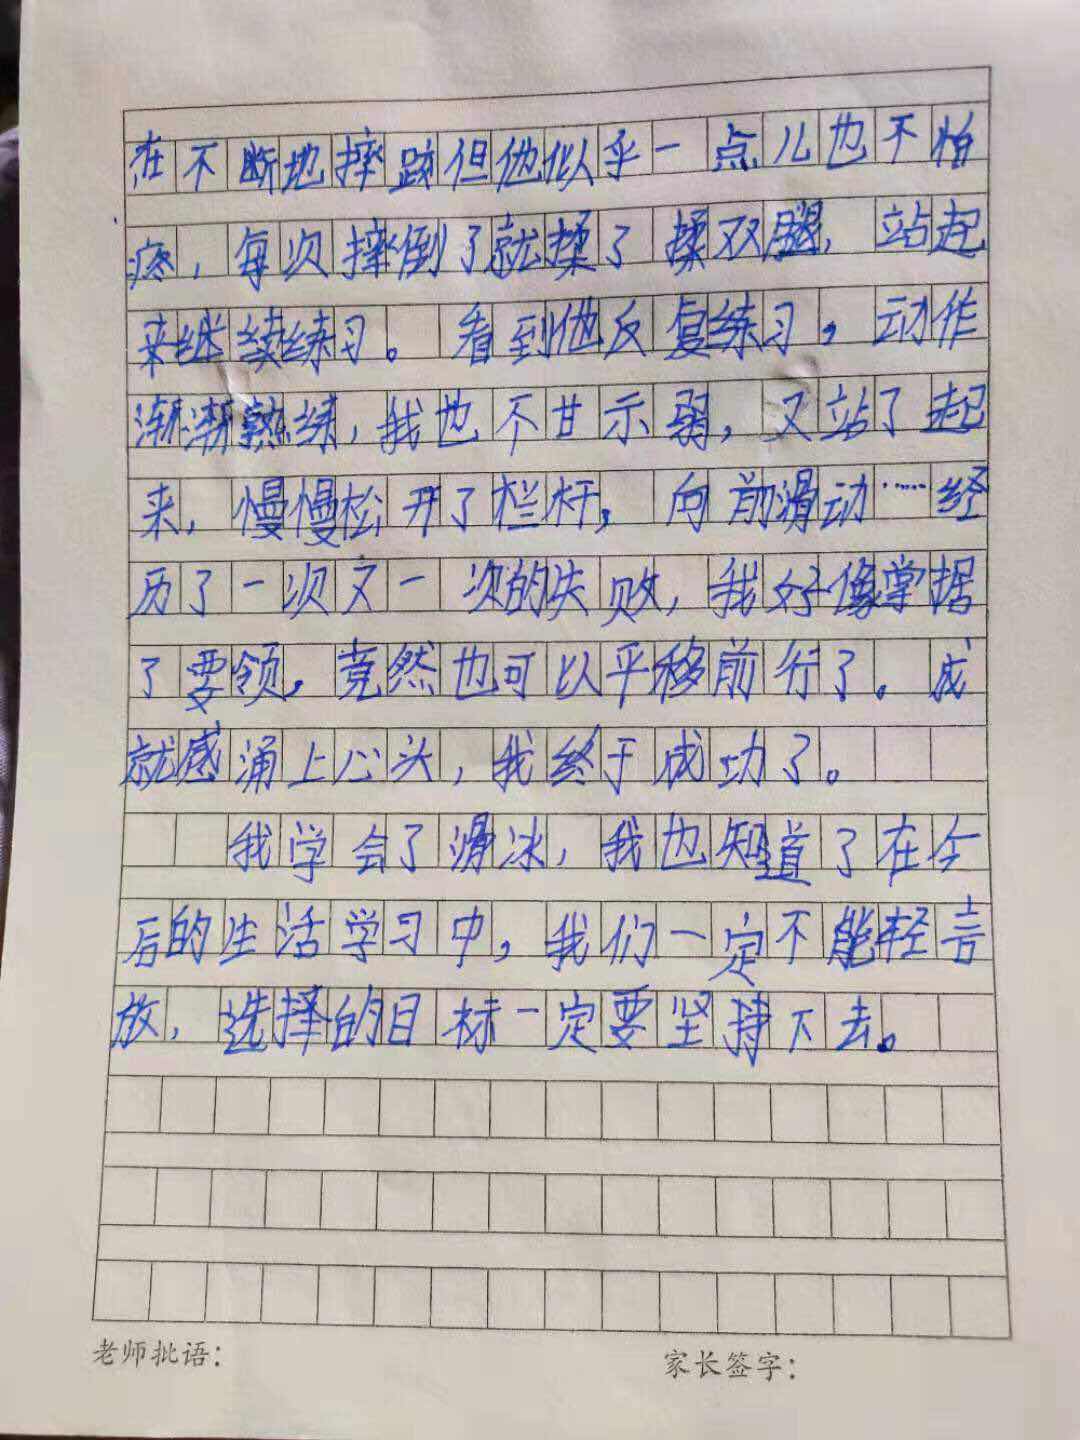 在不断地摔跤但他似乎一点儿也不怕
疼，每次摔倒了就揉了揉双腿，站起
来继续练习。看到他反复练习，动作
渐渐熟练，我也不甘示弱，又站了起
来，慢慢松开了栏杆，向前滑动……经
历了一次又一次的失败，我好像掌握
了要领，竟然也可以平移前行了。成
就感涌上心头，我终于成功了。
我学会了滑冰，我也知道了在今
后的生活学习中，我们一定不能轻言
放，选择的目标一定要坚持下去。
老师批语：
家长签字：